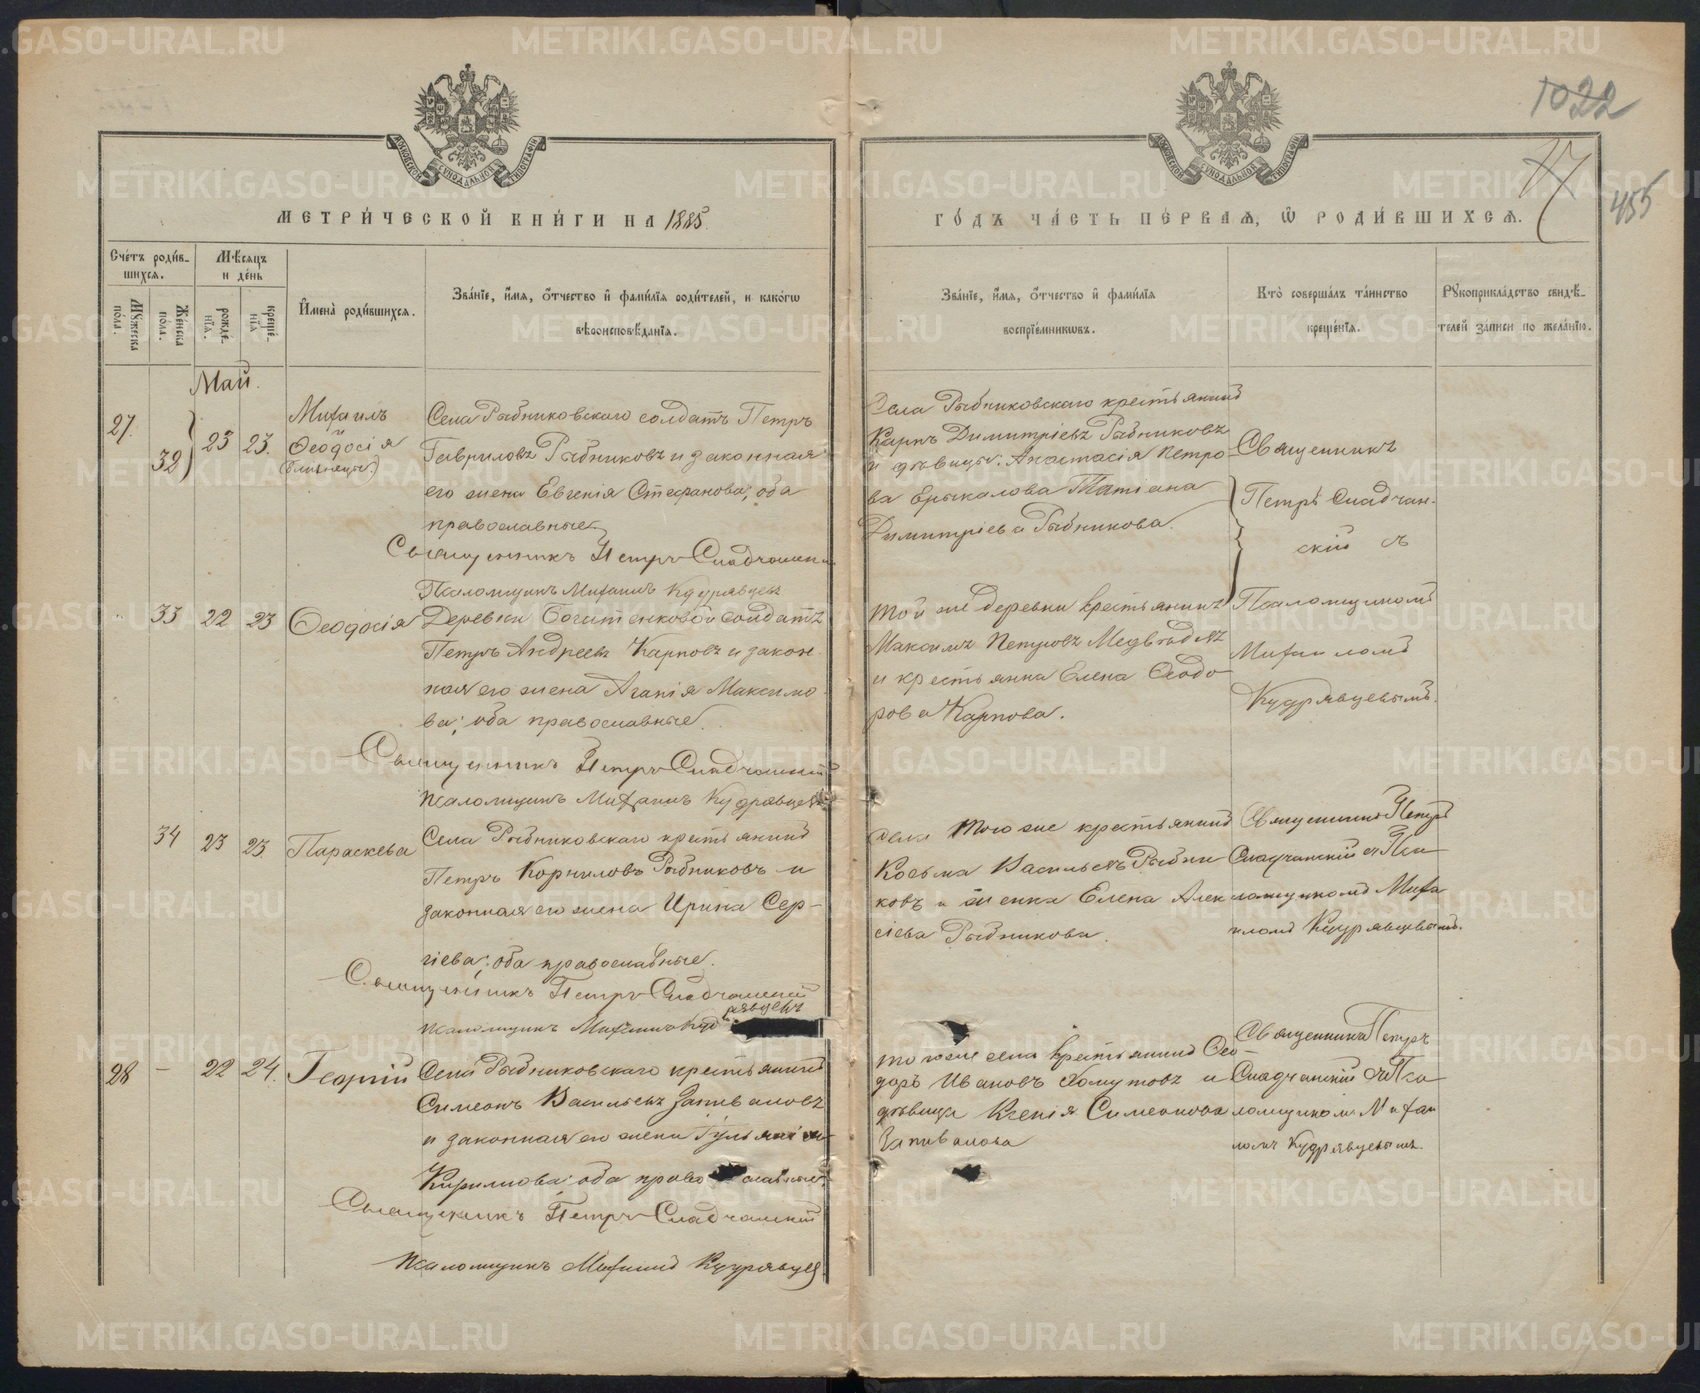 METRIKI.GASO-URAL.RU
1022
17
455
МЕТРИ́ЧЕСКОЙ КНИ́ГИ НА 1885
ГО́ДЪ ЧА́СТЬ ПЕ́РВАЯ, Ѡ РОДИ́ВШИХСЯ.
Сче́тъ роди́в-
шихся.
Мѣ́сяцъ
и де́нь
Му́жеска
по́ла.
Же́нска
по́ла.
рожде-
нїя.
креще́-
нїя
И҆мена̀ роди́вшихся.
Зва́нїе, и҆́мя, ѻ҆́тчество и҆ фами́лїя роди́телей, и како́гѡ
вѣроисповѣ́данїя.
Зва́нїе, и҆́мя, ѻ҆́тчество и҆ фами́лїя
воспрїе́мникѡвъ.
Кто̀ соверша́лъ та́инство
креще́нїя.
Рꙋкоприкла́дство свидѣ́-
телей за́писи по жела́нїю.
Май.
27.
32
23
23.
Михаилъ
и
Ѳеодосія
(близнецы)
Села Рыбниковскаго солдатъ Петръ
Гавриловъ Рыбниковъ и законная
его жена Евгенія Стефанова; оба
православные.
Священникъ Петръ Сладчанскій
Псаломщикъ Михаилъ Кудрявцевъ
Села Рыбниковскаго крестьянинъ
Карпъ Димитріевъ Рыбниковъ
и дѣвицы: Анастасія Петро-
ва Брыкалова Татіана
Димитріева Рыбникова.
Священникъ
Петръ Сладчан-
скій съ
Псаломщикомъ
Михаиломъ
Кудрявцевымъ.
33
22
23
Ѳеодосія
Деревни Богатенковой солдатъ
Петръ Андреевъ Карповъ и закон-
ная его жена Агапія Максимо-
ва; оба православные.
Священникъ Петръ Сладчанскій
Псаломщикъ Михаилъ Кудрявцевъ
Той же деревни крестьянинъ
Максимъ Петровъ Медвѣдевъ
и крестьянка Елена Ѳеодо-
рова Карпова.
34
23
23.
Параскева
Села Рыбниковскаго крестьянинъ
Петръ Корниловъ Рыбниковъ и
законная его жена Ирина Сер-
гіева; оба православные.
Священникъ Петръ Сладчанскій
Псаломщикъ Михаилъ Кудрявцевъ
села того же крестьянинъ
Косьма Васильевъ Рыбни-
ковъ и женка Елена Алек-
сіева Рыбникова.
Священникъ Петръ
Сладчанскій съ Пса-
ломщикомъ Миха-
иломъ Кудрявцевымъ.
28
-
22
24.
Георгій
Села Рыбниковскаго крестьянинъ
Симеонъ Васильевъ Запиваловъ
и законная его жена Іуліанія
Кирилова; оба православные.
Священникъ Петръ Сладчанскій
Псаломщикъ Михаилъ Кудрявцевъ
того же села крестьянинъ Ѳео-
доръ Ивановъ Хомутовъ и
дѣвица Ксенія Симеонова
Запивалова
Священникъ Петръ
Сладчанскій съ Пса-
ломщикомъ Михаи-
ломъ Кудрявцевымъ.